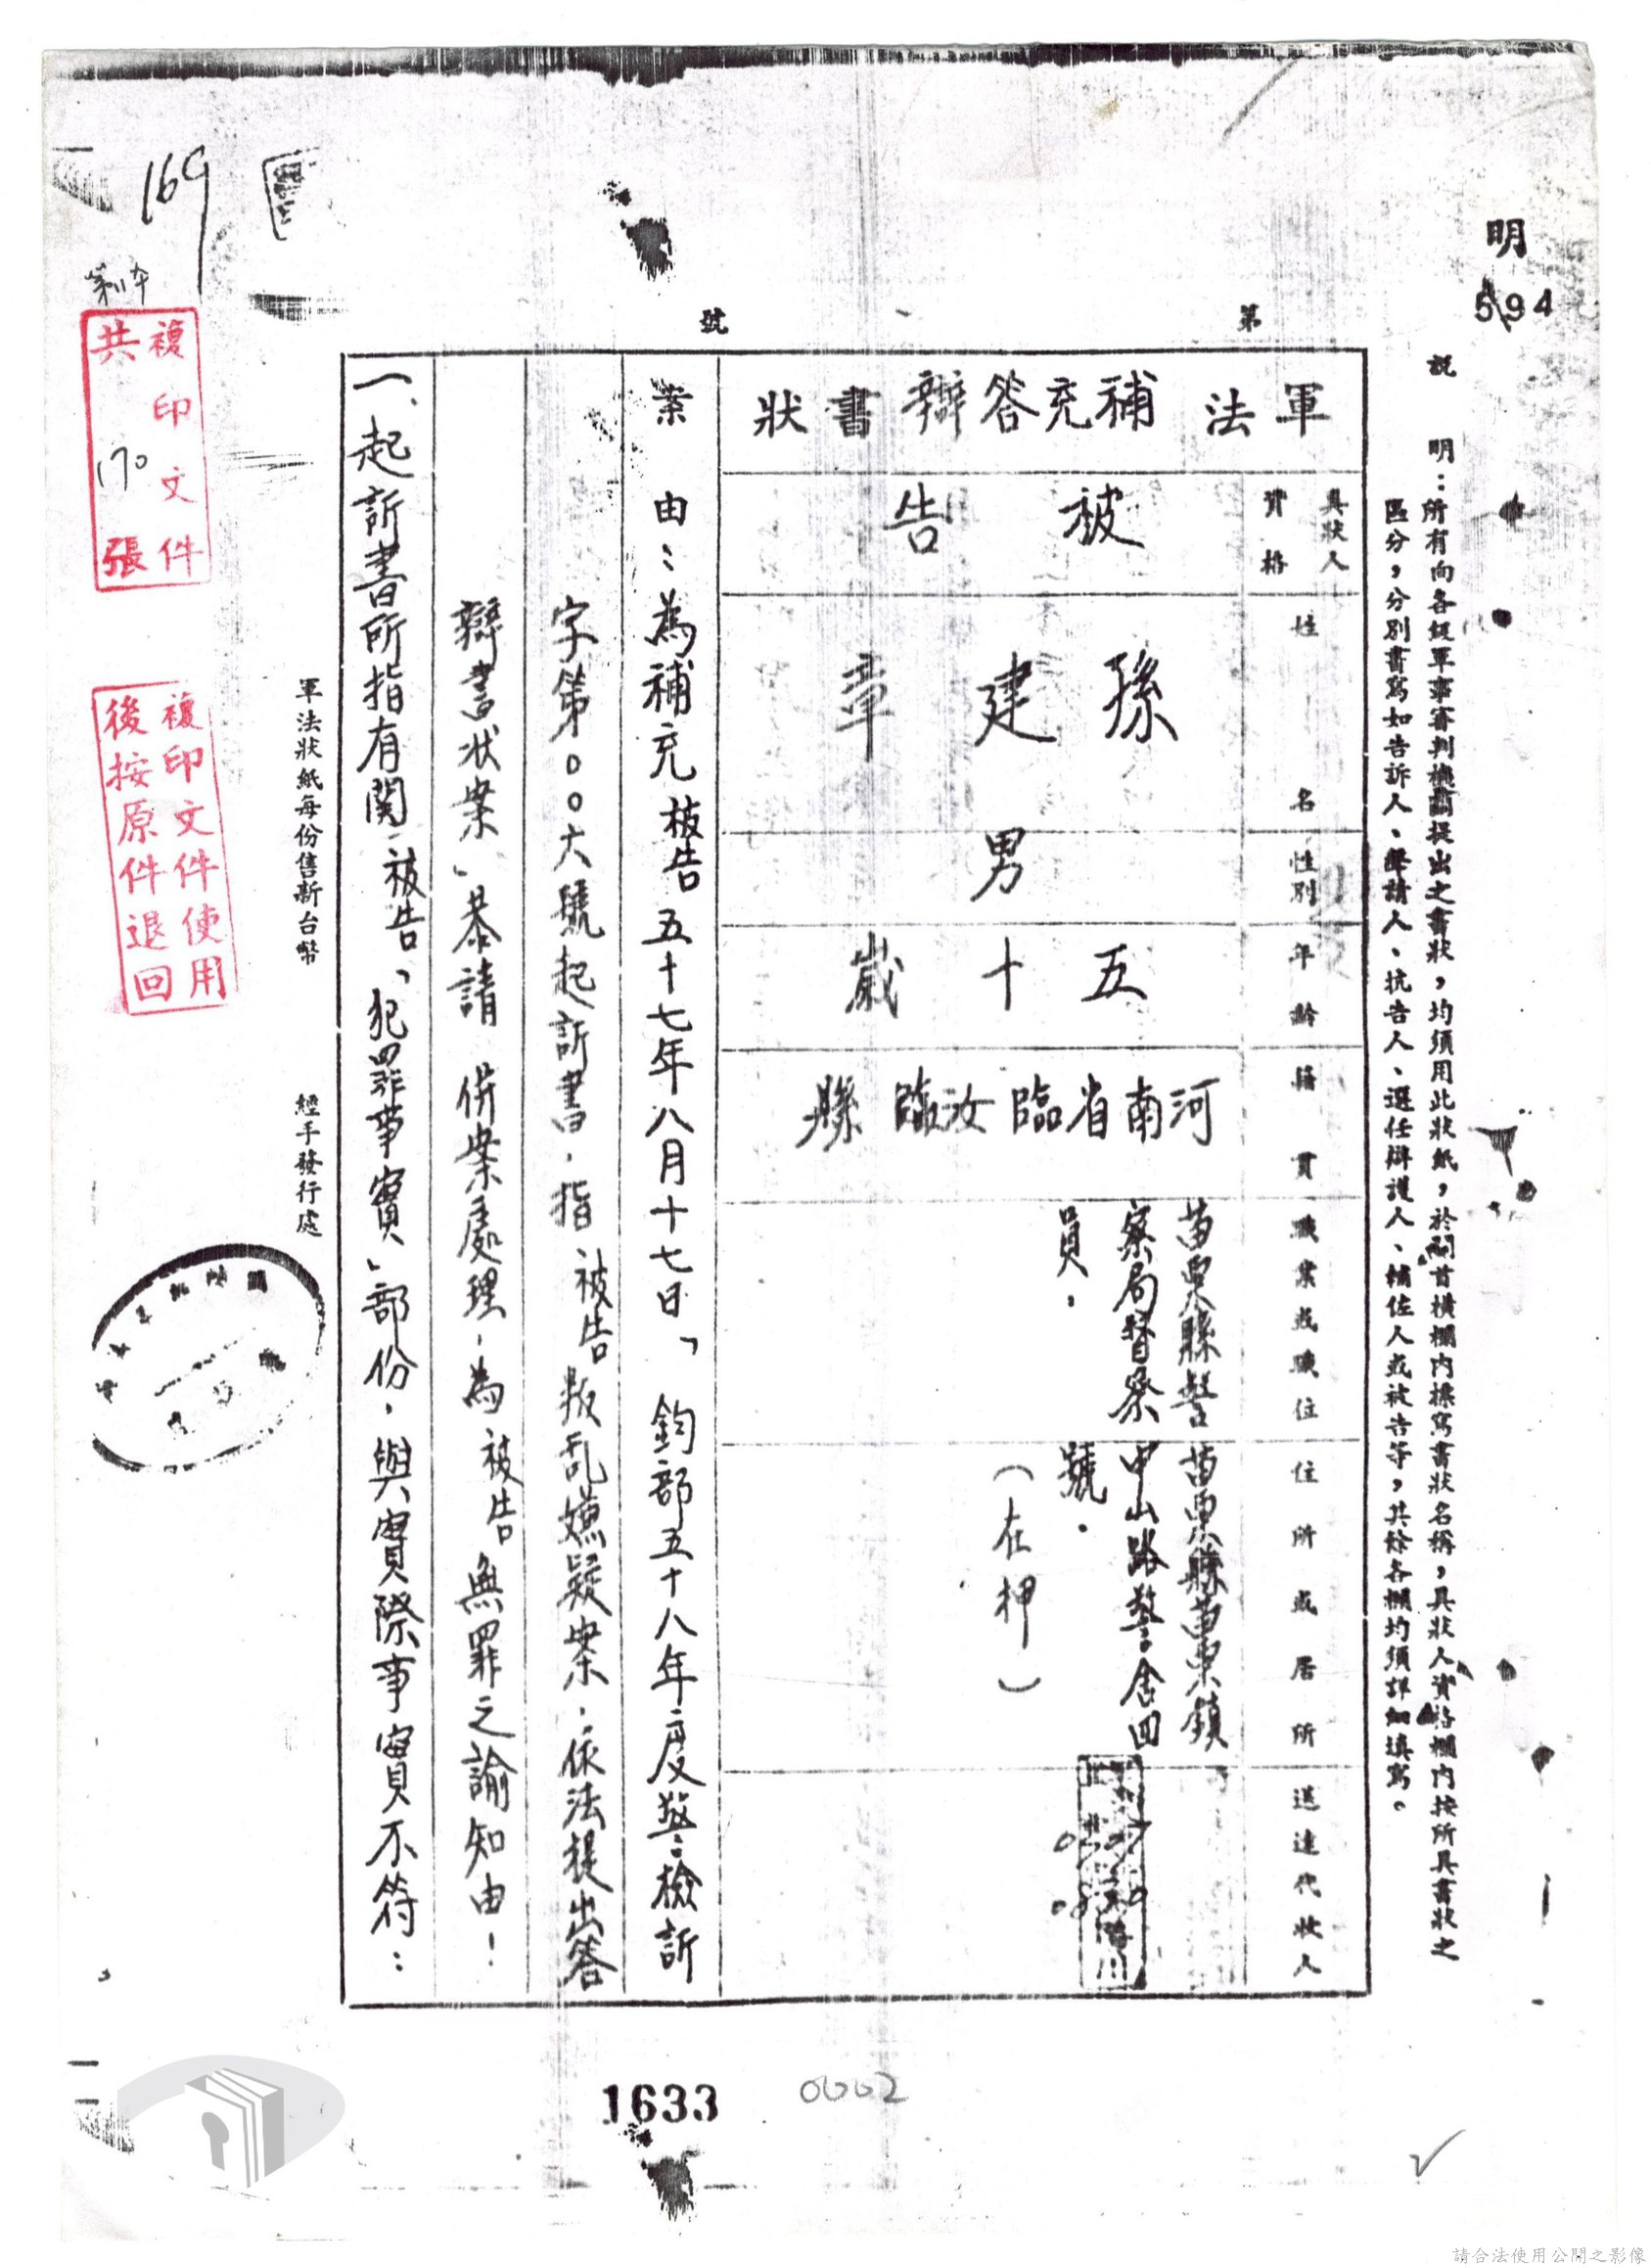 明
594
說　明：所有向各級軍事審判機關提出之書狀，均須用此狀紙，於開首橫欄內標寫書狀名稱，具狀人資格欄內按所具書狀之
區分，分別書寫如告訴人、聲請人、抗告人、選任辯護人、輔佐人或被告等，其餘各欄均須詳細填寫。
第　號
軍法補充答辯書狀
具狀人資格
被告
姓名
孫建章
性別
男
年齡
五十歲
籍貫
河南省臨汝縣
職業或職位
苗栗縣警察局督察員，
住所或居所
苗栗縣苗栗鎮中山路警舍四號．
（在押）
送達代收人
案　由：為補充被告五十七年八月十七日「鈞部五十八年度警檢訴
字第００六號起訴書，指被告叛乱嫌疑案，依法提出答
辯書狀案」恭請併案處理，為被告無罪之諭知由！
一、起訴書所指有関被告「犯罪事實」部份，與實際事實不符：
軍法狀紙每份售新台幣
經手發行處
169
複印文件
共170張
複印文件使用
後按原件退回
1633
0002
請合法使用公開之影像